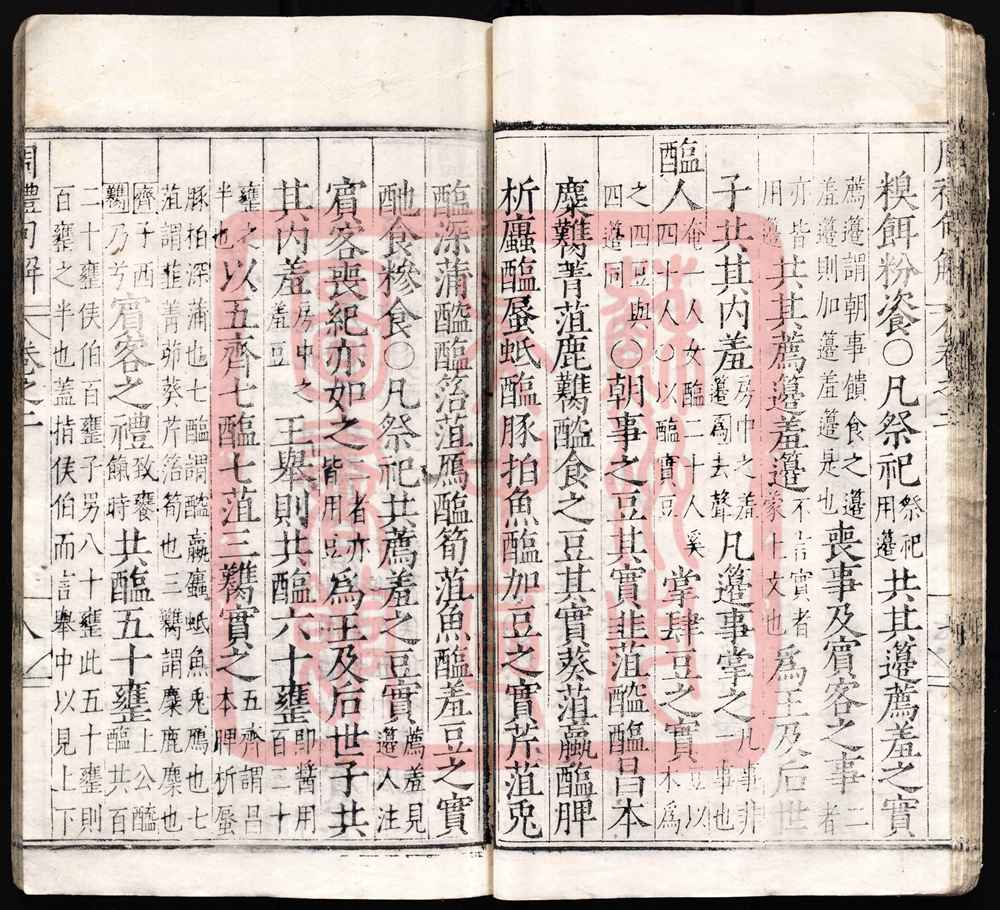 糗餌粉餈○凡祭祀祭祀用籩共其籩薦羞之實
薦籩謂朝事饋食之籩羞籩則加籩羞籩是也喪事及賓客之事二者
亦皆用籩共其薦籩羞籩不言實者蒙上文也爲王及后世
子共其內羞房中之羞籩爲去聲凡籩事掌之凡事非一事也
醢人奄一人女醢二十人奚四十人○以醢實豆掌肆豆之實豆以木爲
之四豆與四籩同○朝事之豆其實韭菹醓醢昌本
麋臡菁菹鹿臡醓食之豆其實葵菹蠃醢脾
析蠯醢蜃蚳醢豚拍魚醢加豆之實芹菹兔
醢深蒲醓醢箈菹鴈醢筍菹魚醢羞豆之實
酏食糝食○凡祭祀共薦羞之豆實薦羞見籩人注
賓客喪紀亦如之皆用豆者亦爲王及后世子共
其內羞房中之羞豆王舉則共醢六十罋即醬用百二十
罋之半也以五齊七醢七菹三臡實之五齊謂昌本脾析蜃
豚拍深蒲也七醢謂醓蠃蠯蚳魚兔鴈也七菹謂韭菁茆葵芹箈筍也三臡謂麋鹿麇也
齊子西臡乃兮賓客之禮致饔餼時共醢五十罋上公醓醢共百
二十罋侯伯百罋子男八十罋此五十罋則百罋之半也蓋指侯伯而言舉中以見上下
周禮句解 卷之二 八